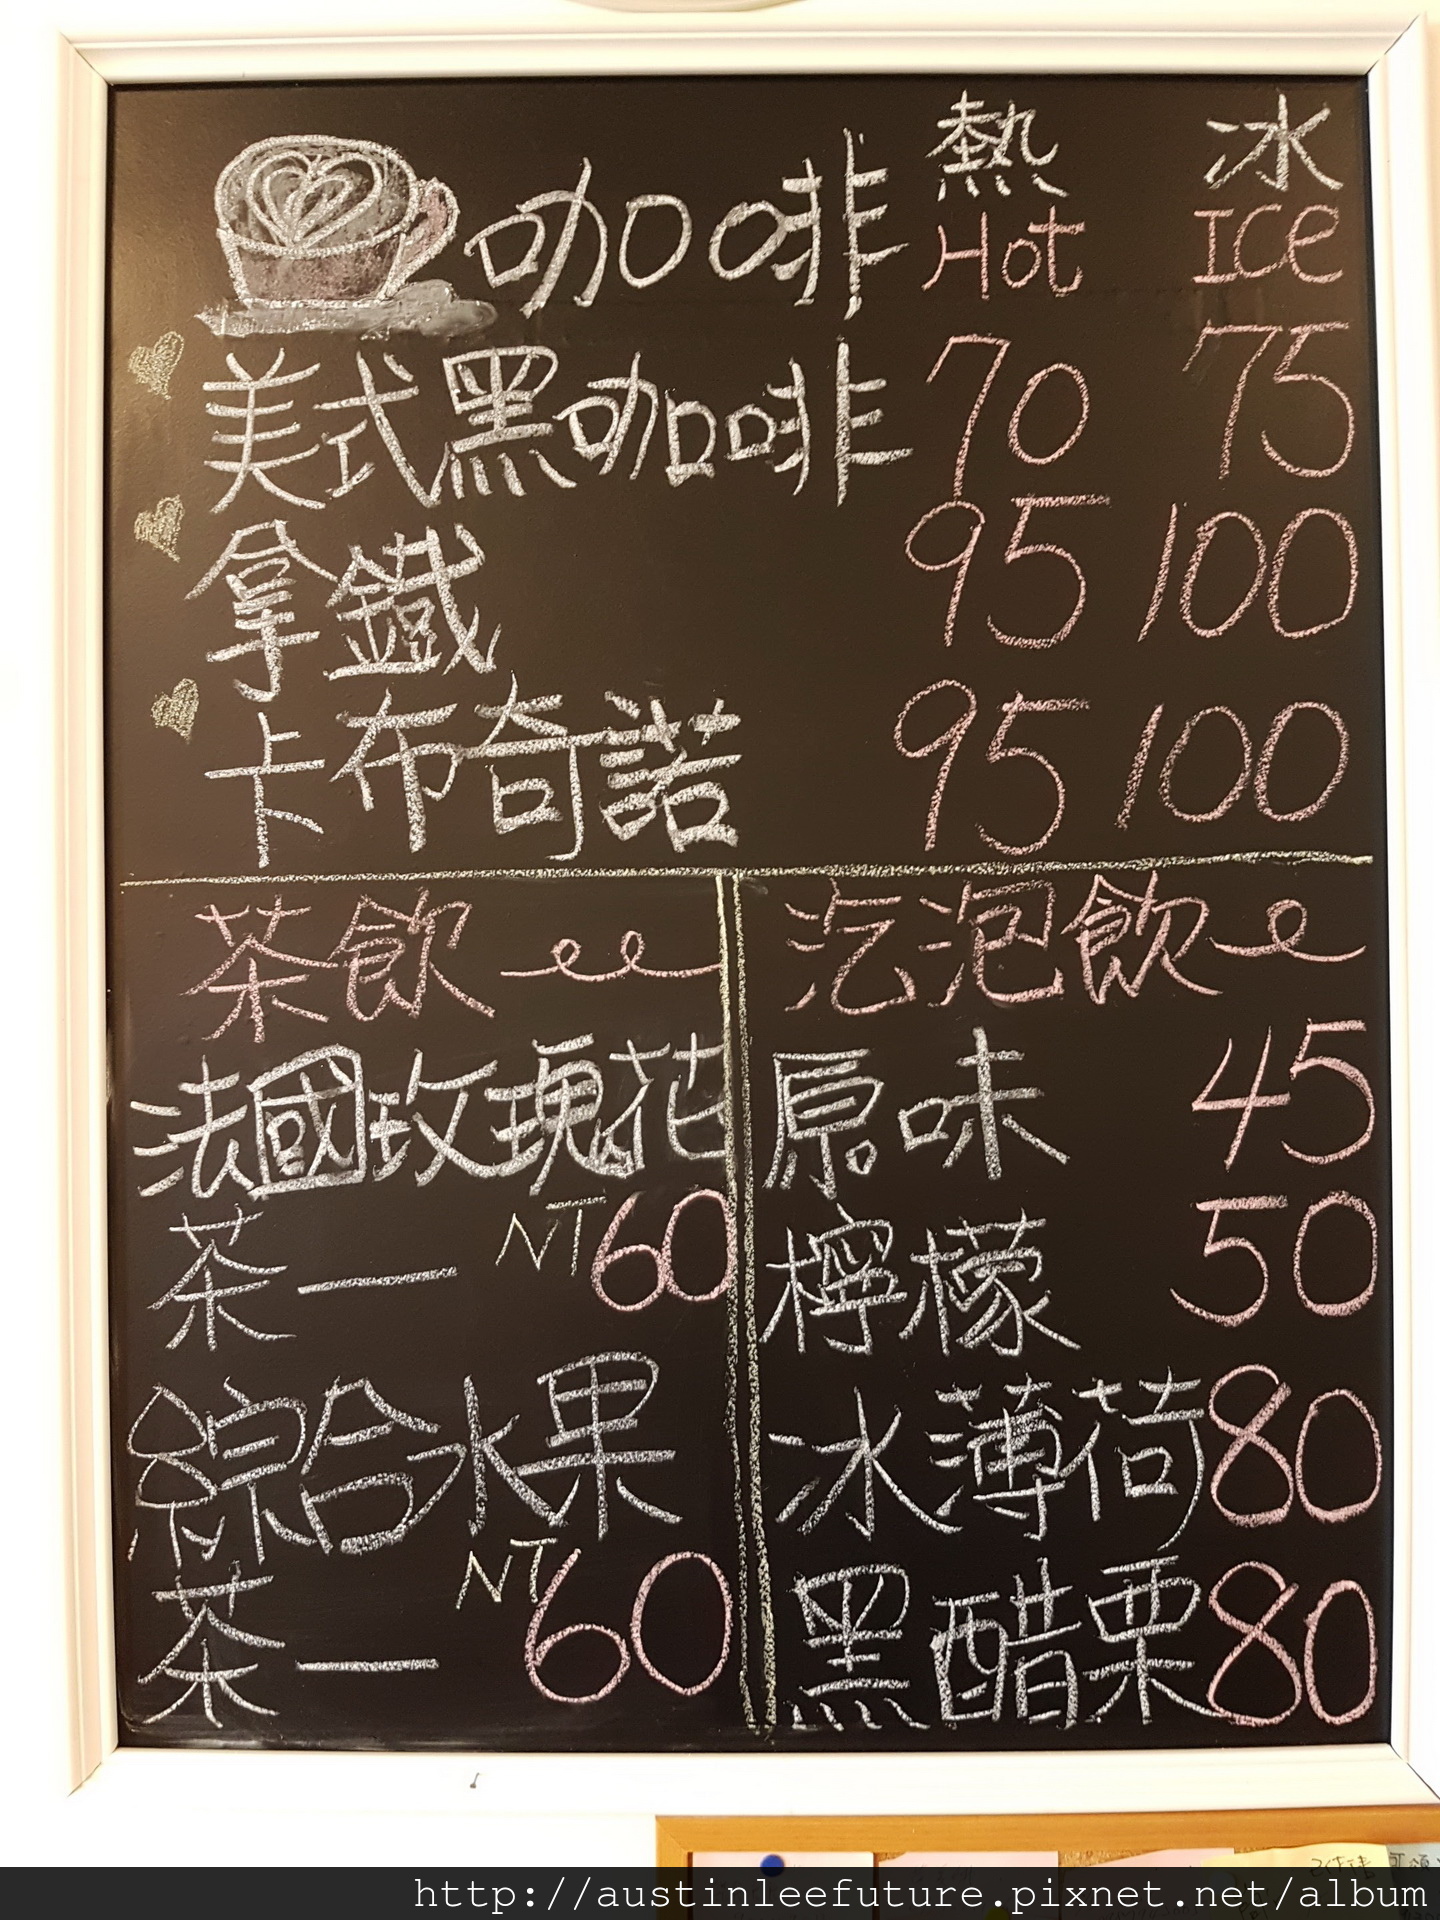 咖啡 熱 冰
Hot ICe
美式黑咖啡 70 75
拿鐵 95 100
卡布奇諾 95 100
茶飲
法國玫瑰花
茶— NT60
綜合水果
茶— NT60
汽泡飲
原味 45
檸檬 50
冰薄荷 80
黑醋栗 80
http://austinleefuture.pixnet.net/album